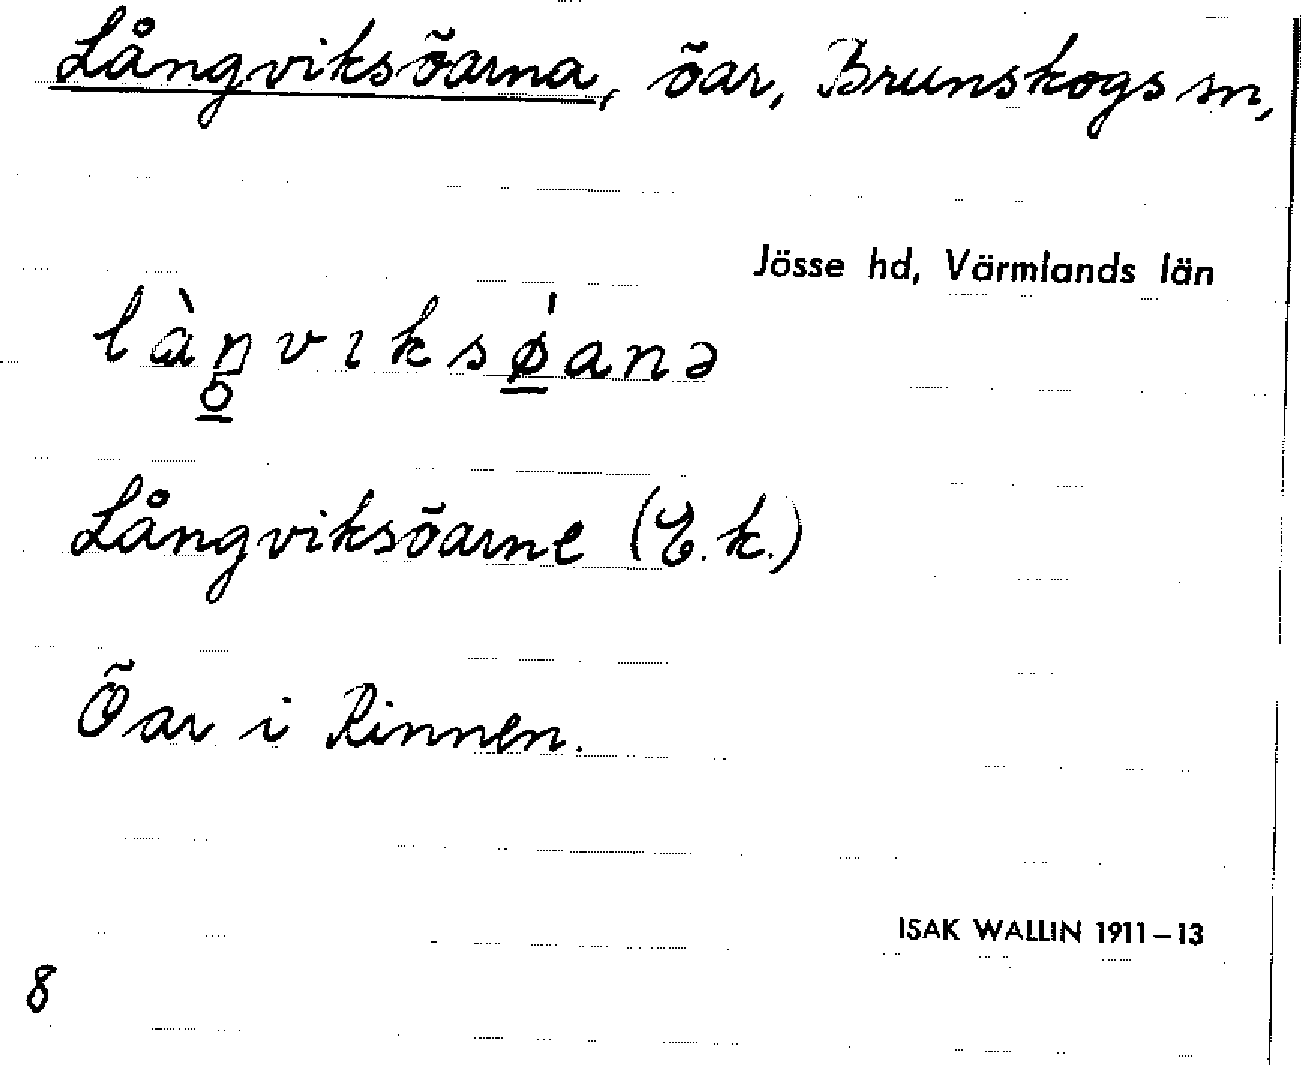 Långviksöarna, öar, Brunskogs sn,
Jösse hd, Värmlands län
làŋvıksǿanə
Långviksöarne (E.k.)
Öar i Rinnen.
ISAK WALLIN 1911–13
8